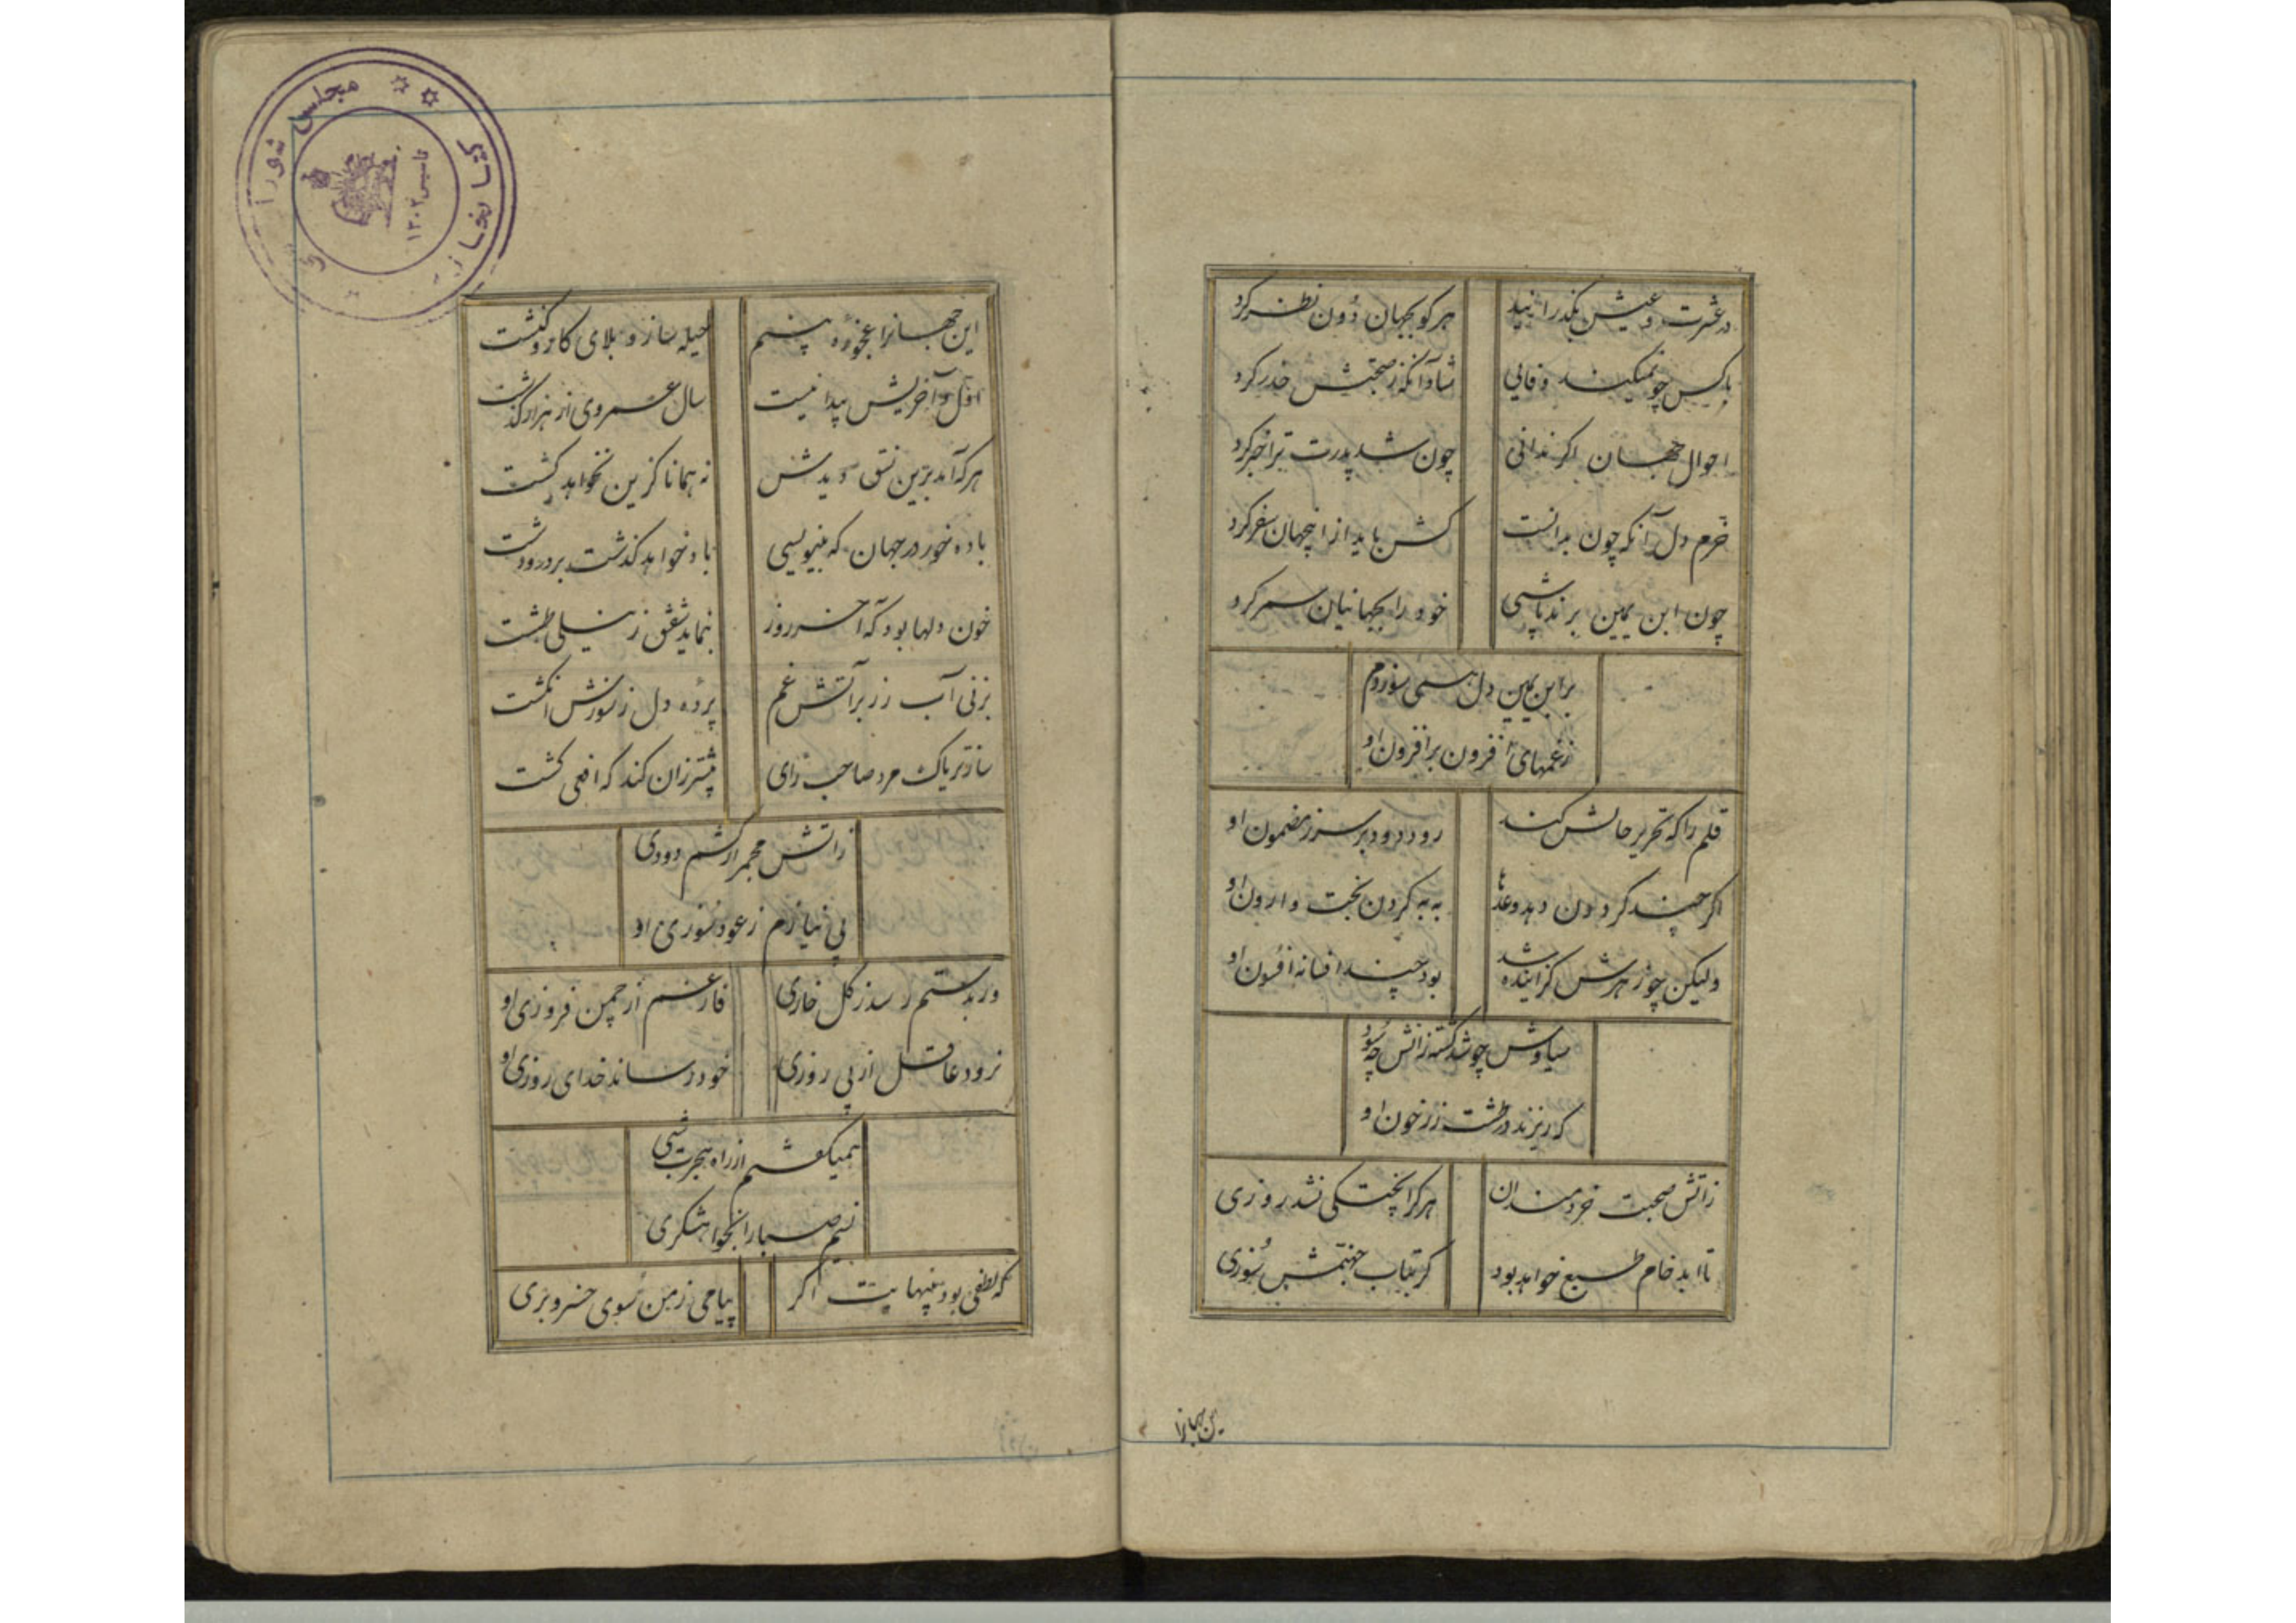 در عشرت و عیش نگذرانید هرکو بجهان دون نظر کرد
باکس چو نمیکند وفائی شاد آنکه ز صحبتش حذر کرد
احوال جهان اگر ندانی چون شد پدرت ترا خبر کرد
خرم دل آنکه چون بدانست کش باید ازا جهان سفر کرد
چون ابن یمین برند پاشی خود را بجهانیان سمر کرد
بر ابن یمین دل همی سوزدم
زغمهای افزون بر افزون او
قلم را که تحریر حالش کند رود درود بر سر ز مضمون او
اگر چند گردون دهد وعدها به به کردن بخت وارون او
ولیکن چو زهرش گزاینده شد بود چند افسانه افسون او
سیاوش چو شد کشته زانش چه سود
که ریزند در طشت زر خون او
زاتش صحبت خردمندان هرکرا پختگی نشد روزی
تا ابد خام طبع خواهد بود گر بتاب جهنمش سوزی
ین جهانرا
این جهانرا عجوزه بینم حیله ساز و بلای کار و کشت
اول و آخریش پیدا نیست سال عمر وی از هزار گذشت
هرکه آمد برین نسق دیدش نه همانا کزین نخواهد گشت
باده خور در جهان که بنیوسی باد خواهد گذشت بر در و دشت
خون دلها بود که آخر روز بنماید شفق ز نیلی طشت
بزنی آب زر بر آتش غم پرده دل ز سوزش انگشت
سازتریاک مرد صاحب رای بیشتر زان کند که افعی گشت
زاتش مجمر ار کشم دودی
بی نیازم ز عود سوزی او
ور بدستم رسد ز گل خاری فارغم از چمن فروزی او
نرود عاقل از پی روزی خود رساند خدای روزی او
همیگفتم از راه هجرت شبی
نسیم صبا را بخواهشگری
که لطفی بود بنهایت اگر پیامی ز من سوی خسرو بری
کتابخانه مجلس شورا
تاسیس ۱۳۰۲